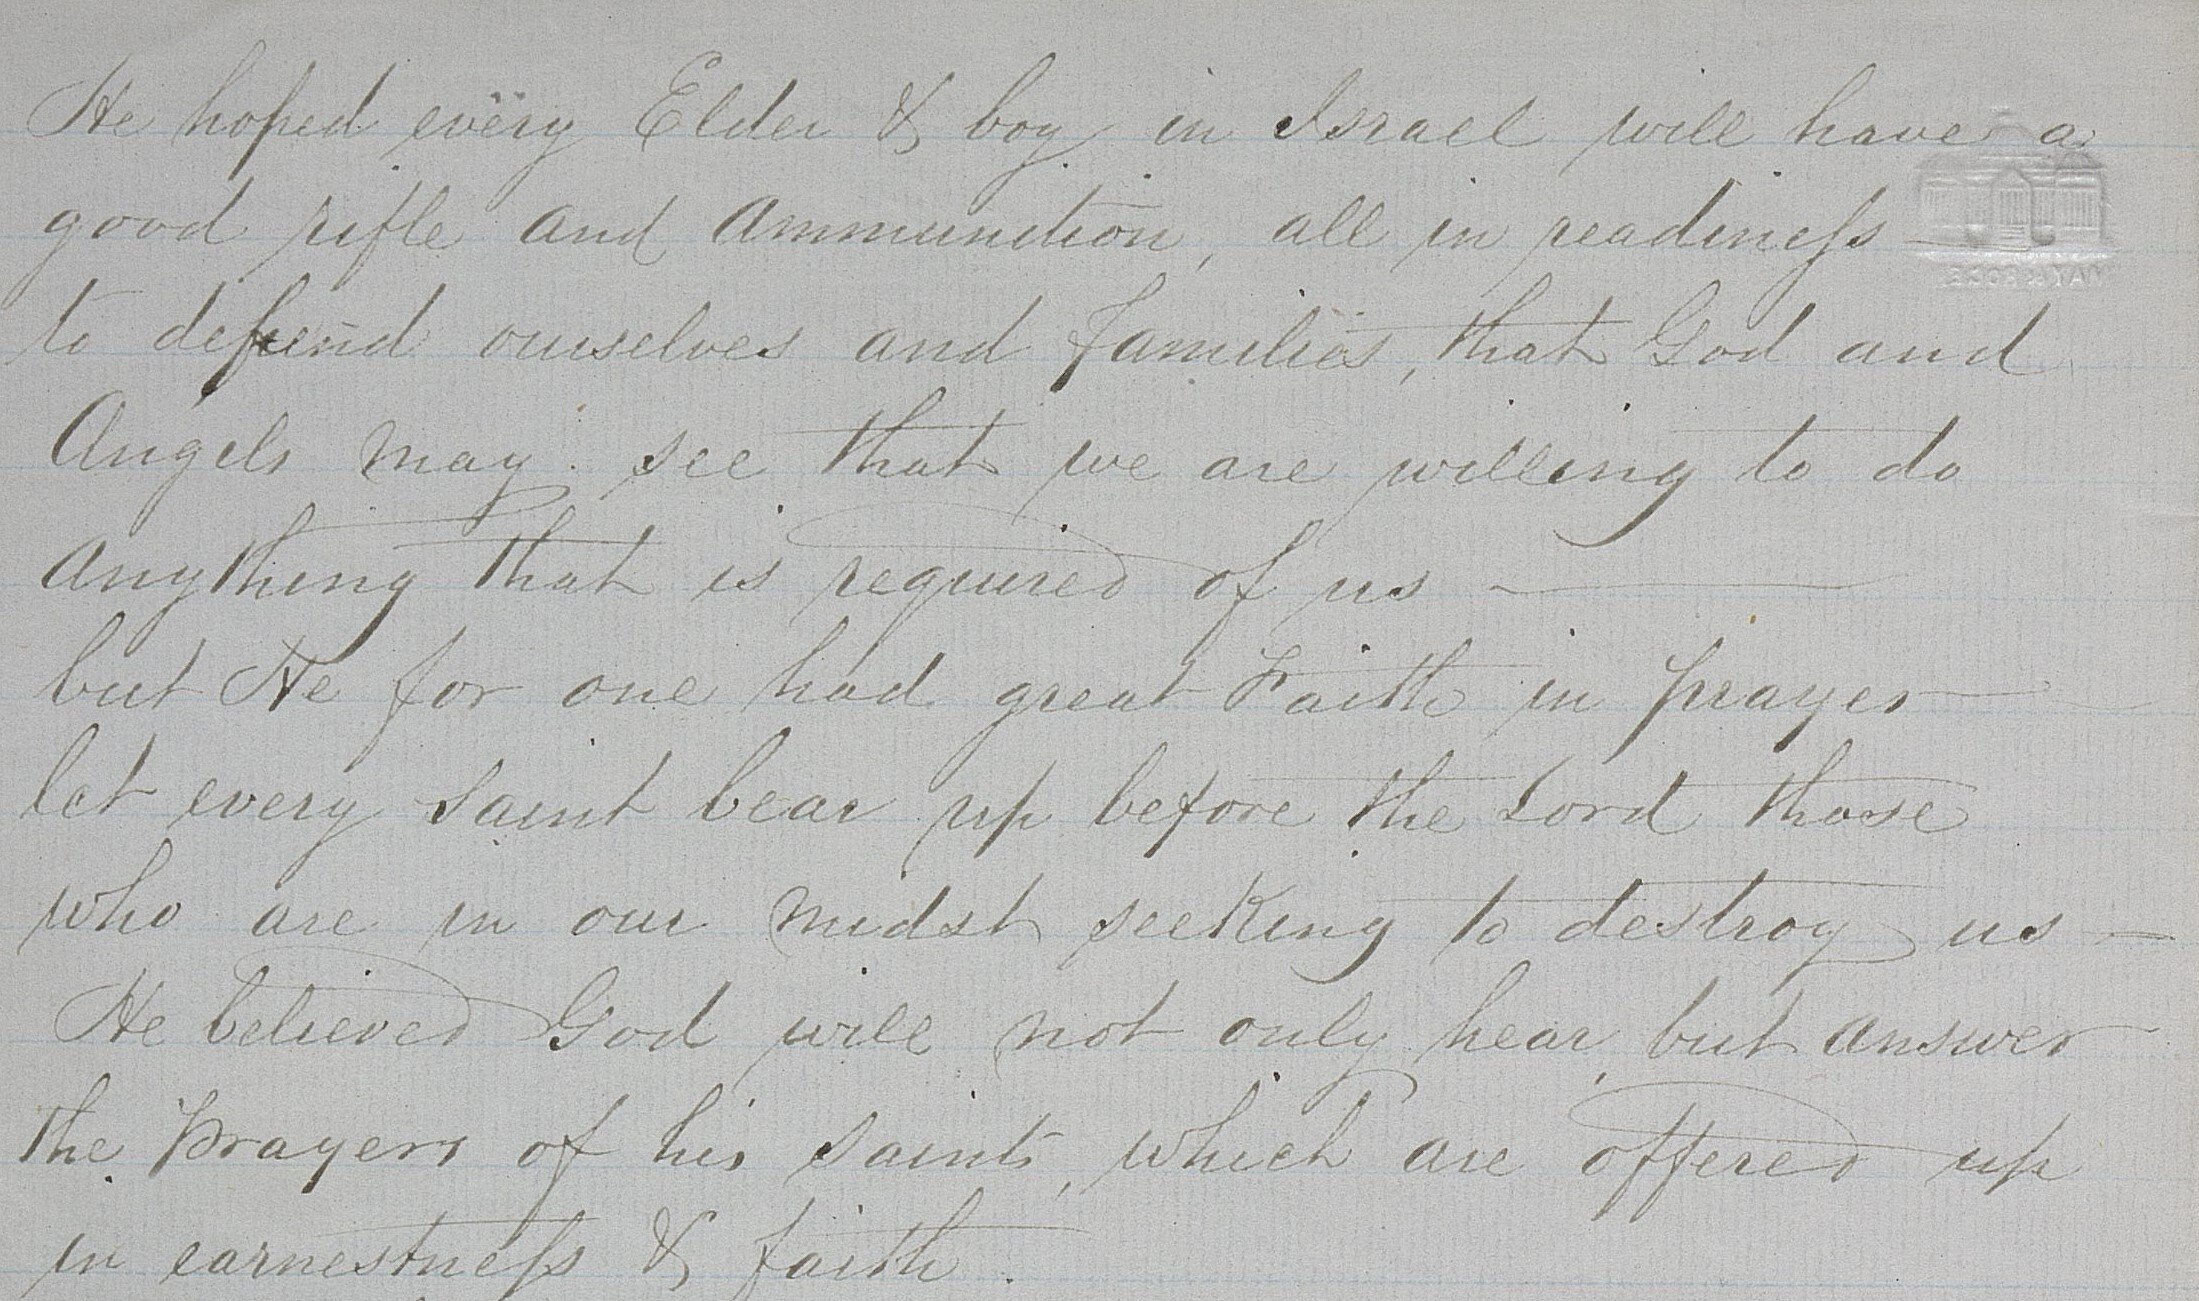 He hoped every Elder & boy in Israel will have a
good rifle and Ammunition, all in readiness
to defend ourselves and families, that God and
Angels may see that we are willing to do
anything that is required of us —
but He for one had great Faith in prayer
let every saint bear up before the Lord those
who are in our midst seeking to destroy us —
He believed God will not only hear, but answer
the prayers of his saints, which are offered up
in earnestness & faith.